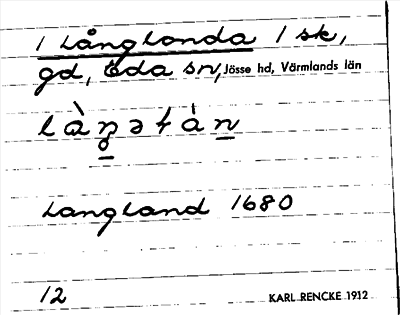 1 Långlanda 1 sk,
gd, Eda sn, Jösse hd, Värmlands län
Langland 1680
12 KARL RENCKE 1912